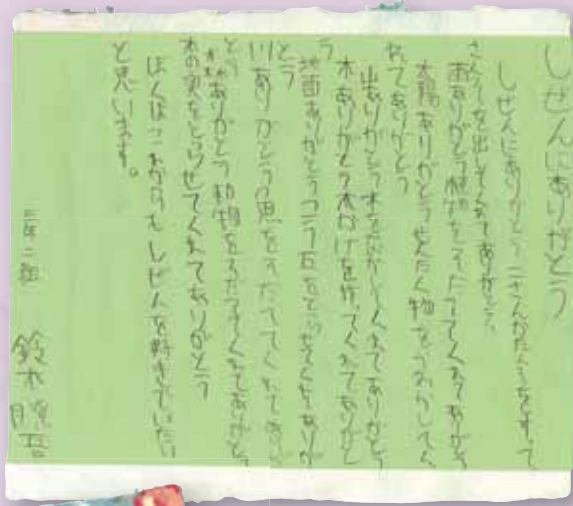 しぜんにありがとう
しぜんにありがとう二さんかたんそをすって
さんそを出してくれてありがとう。
雨ありがとう植物をそだててくれてありがとう
太陽ありがとうせんたく物をかわかしてく
れてありがとう
山ありがとう水をながしてくれてありがとう
木ありがとう木かげを作ってくれてありがと
う
地面ありがとう
とう
川ありがとう魚をそだててくれてありが
とう
森ありがとう動物をそだててくれてありがとう
木の実をとらせてくれてありがとう
ぼくはこれからもしぜんを好きでいたい
と思います。
三年二組
鈴木